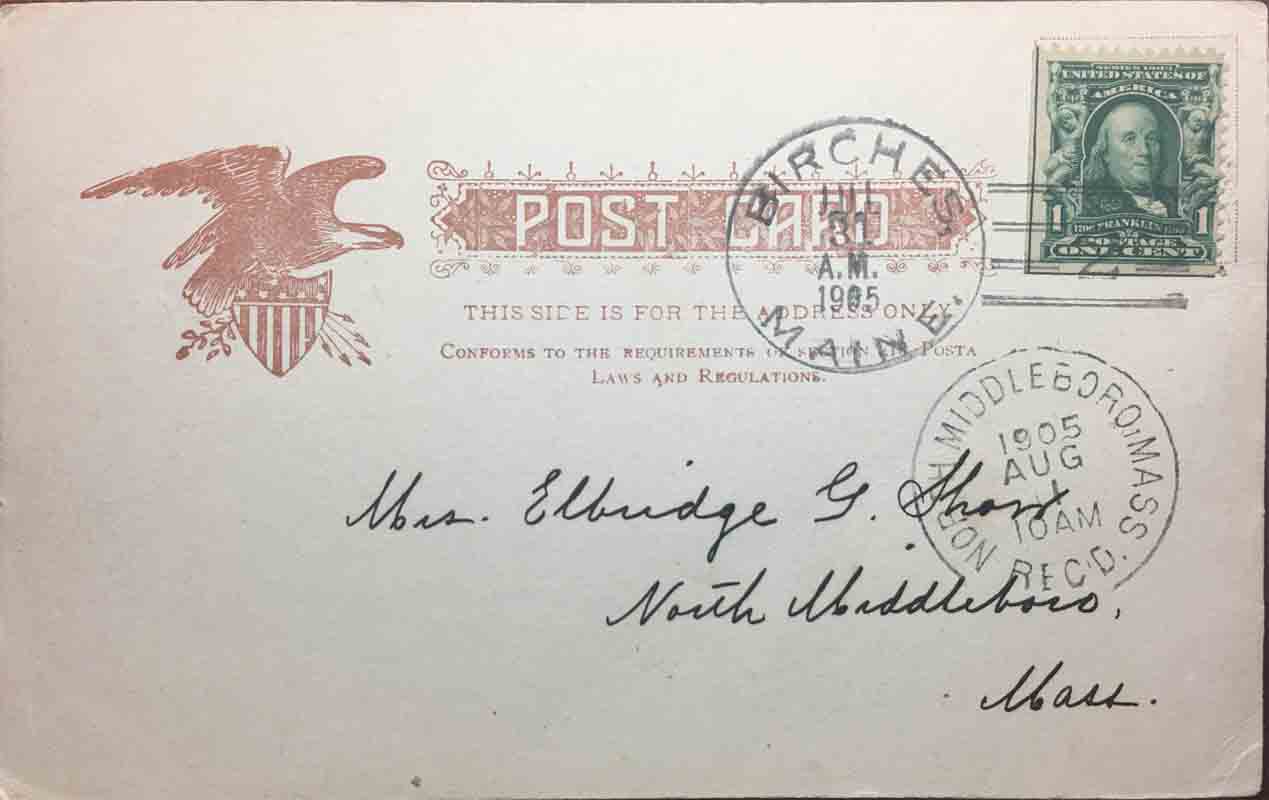 SERIES 1902
UNITED STATES OF
AMERICA
1 1706 FRANKLIN 1790 1
POSTAGE
ONE CENT
BIRCHES,
JUL
31
A.M.
1905
MAINE.
POST CARD
THIS SIDE IS FOR THE ADDRESS ONLY
CONFORMS TO THE REQUIREMENTS OF SECTION POSTA
LAWS AND REGULATIONS.
NORTH MIDDLEBORO, MASS.
1905
AUG
1
10AM
REC'D.
Mrs. Elbridge G. Shaw
North Middleboro,
Mass.